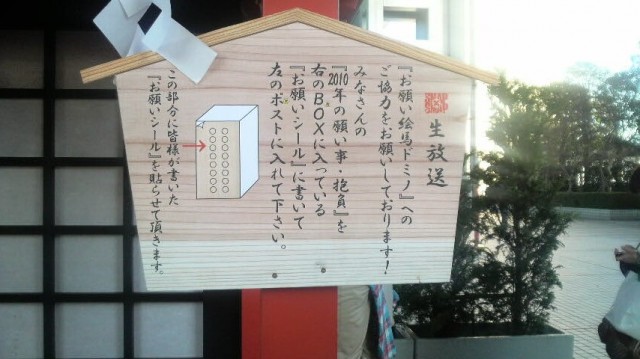 生放送
『お願い絵馬ドミノ』への
ご協力をお願いしております!
みなさんの
『2010年の願い事・抱負』を
右のBOXに入っている
『お願いシール』に書いて
左のポストに入れて下さい。
この部分に皆様が書いた
『お願いシール』を貼らせて頂きます。